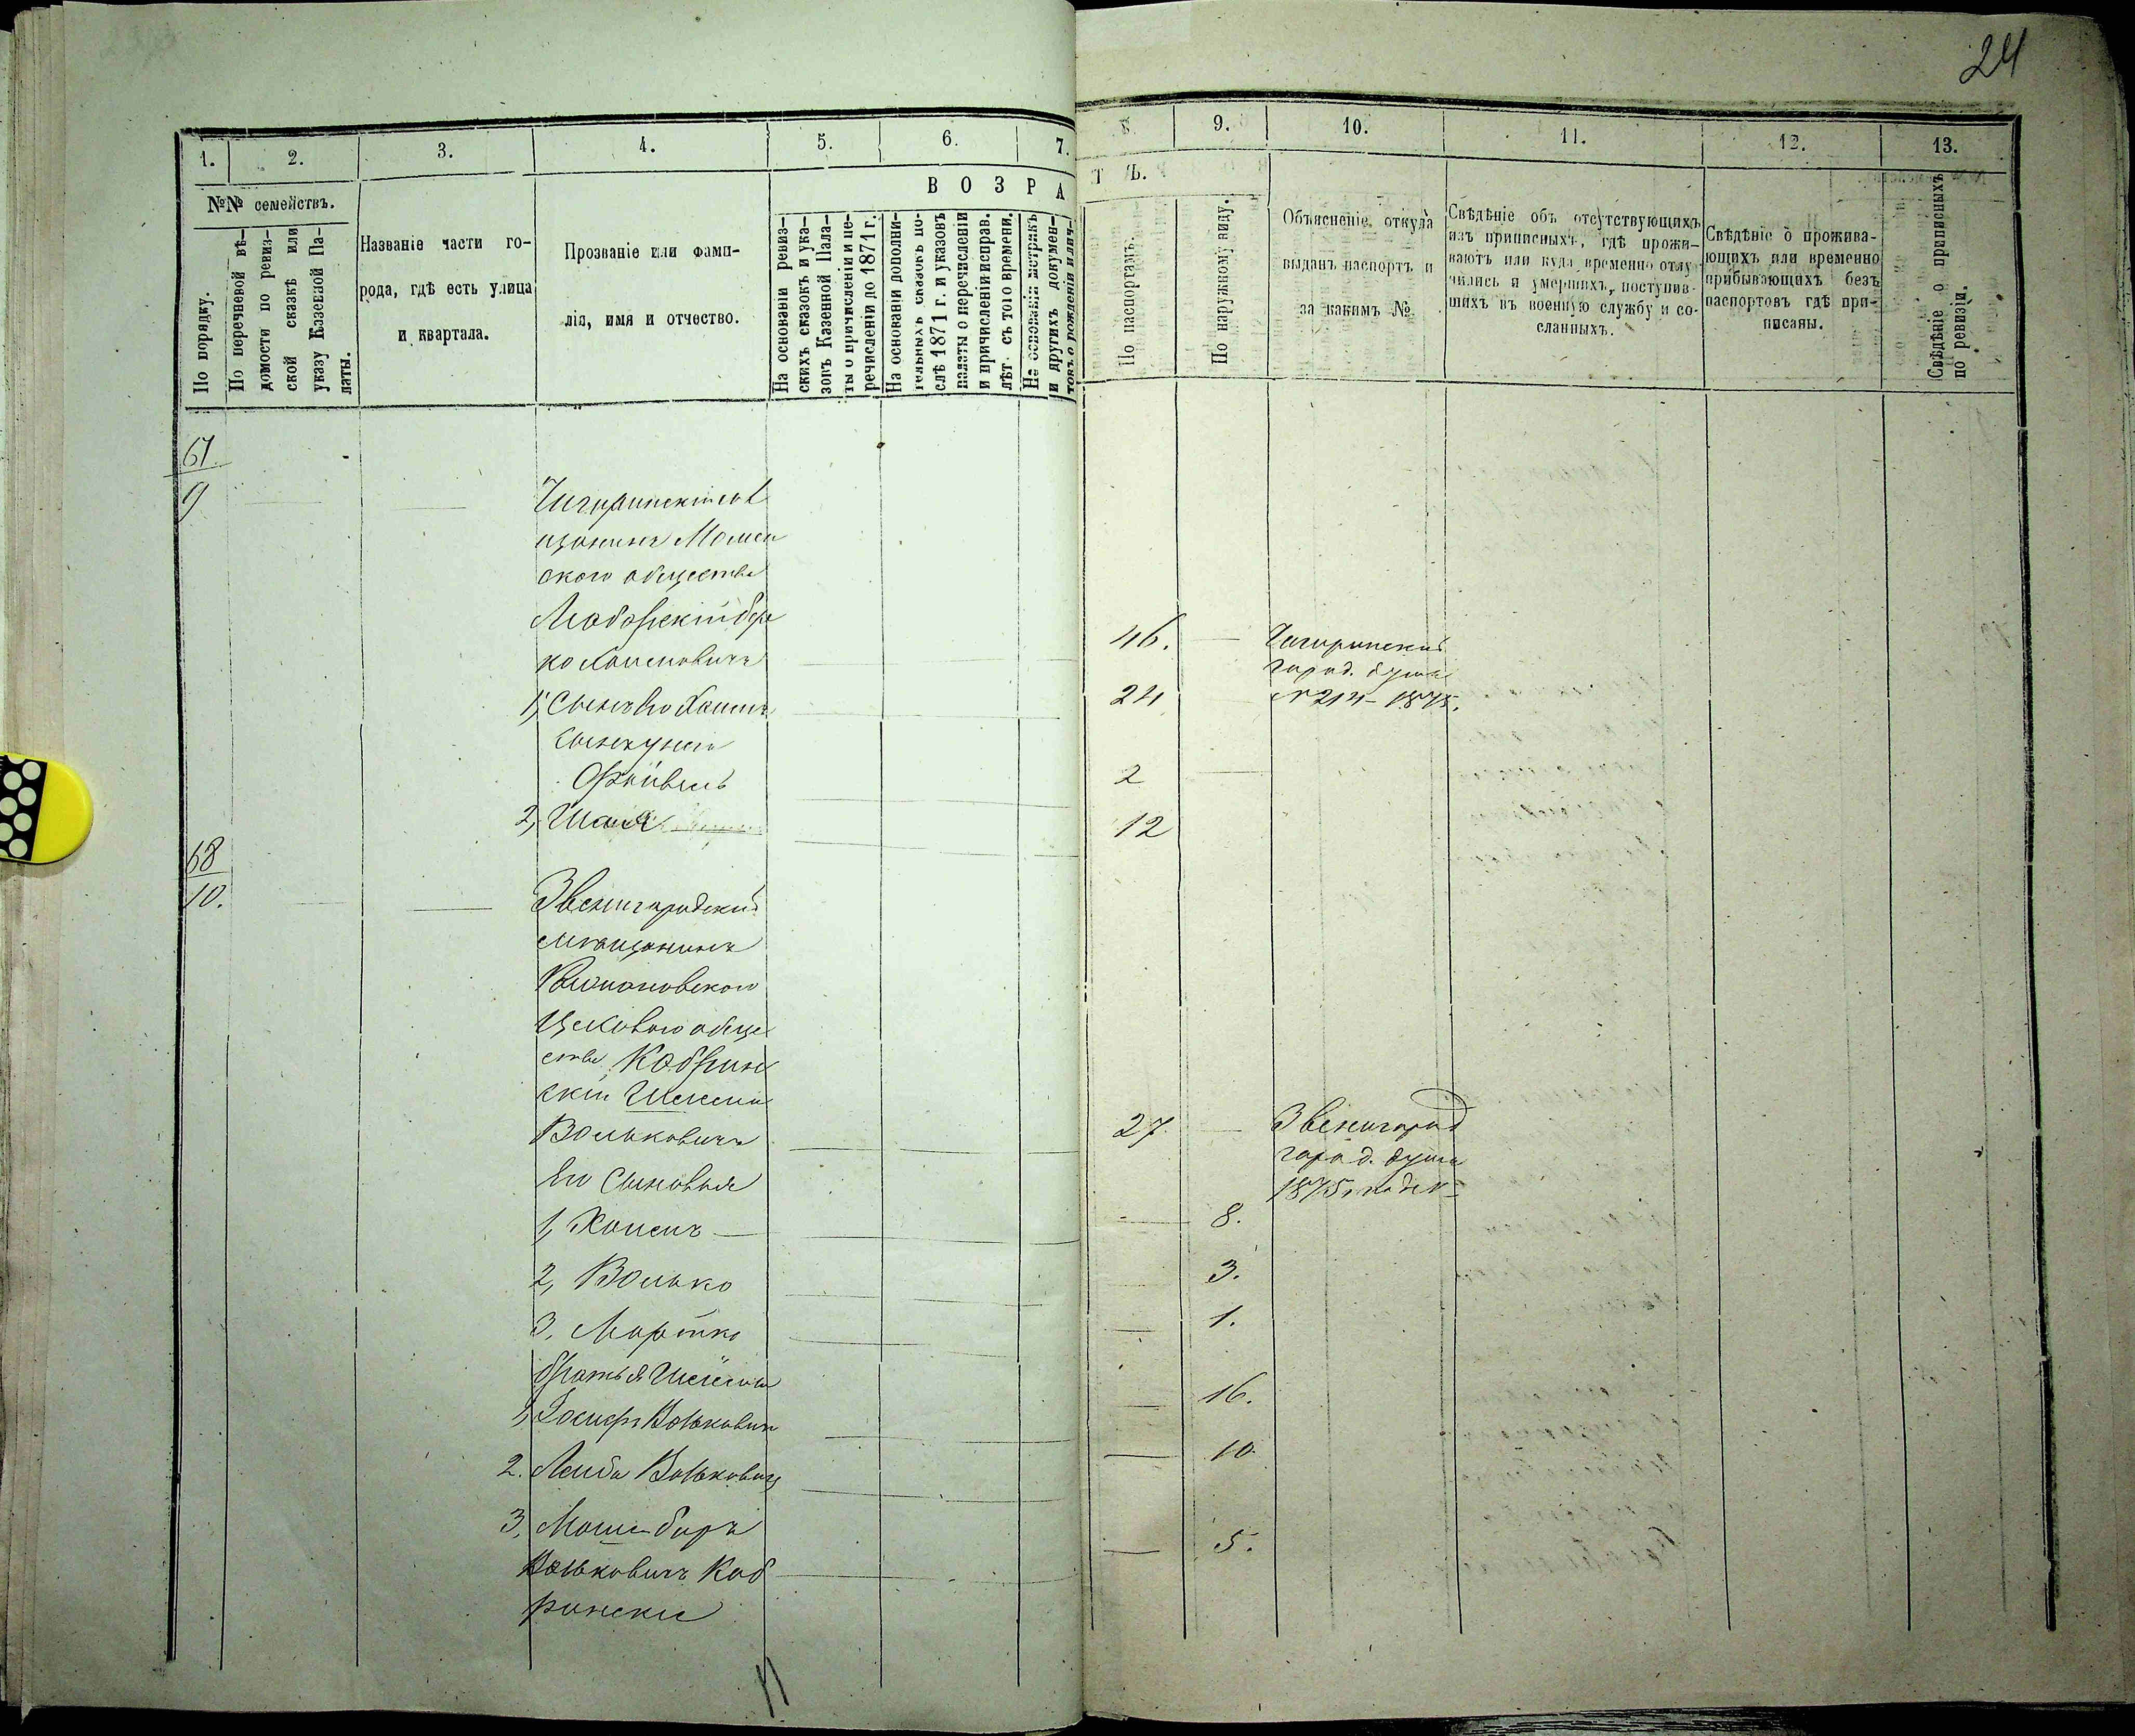 24
1.
2.
3.
4.
5.
6.
7.
8.
9.
10.
11.
12.
13.
№№ семействъ.
По порядку.
По перечневой вѣ-
домости по ревиз-
ской сказкѣ или
указу Казенной Па-
латы.
Названіе части го-
рода, гдѣ есть улица
и квартала.
Прозваніе или фами-
лія, имя и отчество.
В О З Р А
Т Ъ.
На основаніи ревиз-
скихъ сказокъ и ука-
зовъ Казенной Пала-
ты о причисленіи и пе-
речисленіи до 1871 г.
На основаніи дополни-
тельныхъ сказокъ по-
слѣ 1871 г. и указовъ
палаты о перечисленіи
и причисленіи исправ.
лѣт. съ того времени.
На основаніи метрикъ
и другихъ докумен-
товъ о рожденіи и лич-
По паспортамъ.
По наружному виду.
Объясненіе откуда
выданъ паспортъ и
за какимъ №.
Свѣдѣніе объ отсутствующихъ
изъ приписныхъ, гдѣ прожи-
ваютъ или куда временно отлу-
чились и умершихъ, поступив-
шихъ въ военную службу и со-
сланныхъ.
Свѣдѣніе о прожива-
ющихъ или временно
прибывающихъ безъ
паспортовъ гдѣ при-
писаны.
Свѣдѣніе о приписныхъ
по ревизіи.
67
9
Чигиринскій мѣ
щанинъ
ского общества
ко Хаимовичъ
46.
Чигиринской
город. дума
1, Сынъ его Хаимъ
24
№ 214 - 1875.
Сынъ у него
Файвель
2
2, Шая
12
68
10.
Звенигородскій
мѣщанинъ
общe
ства Кобрин
скій
Вольковичъ
27.
Звенигород
город. дума
Его Сыновья
1875 года №
1, Хаимъ
8.
2, Волько
3.
3, Мортко
1.
братья
1, Іосифъ Вольковичъ
16.
2. Лейба Вольковичъ
10
3, Мошебаръ
5.
Вольковичъ Коб
ринскіе